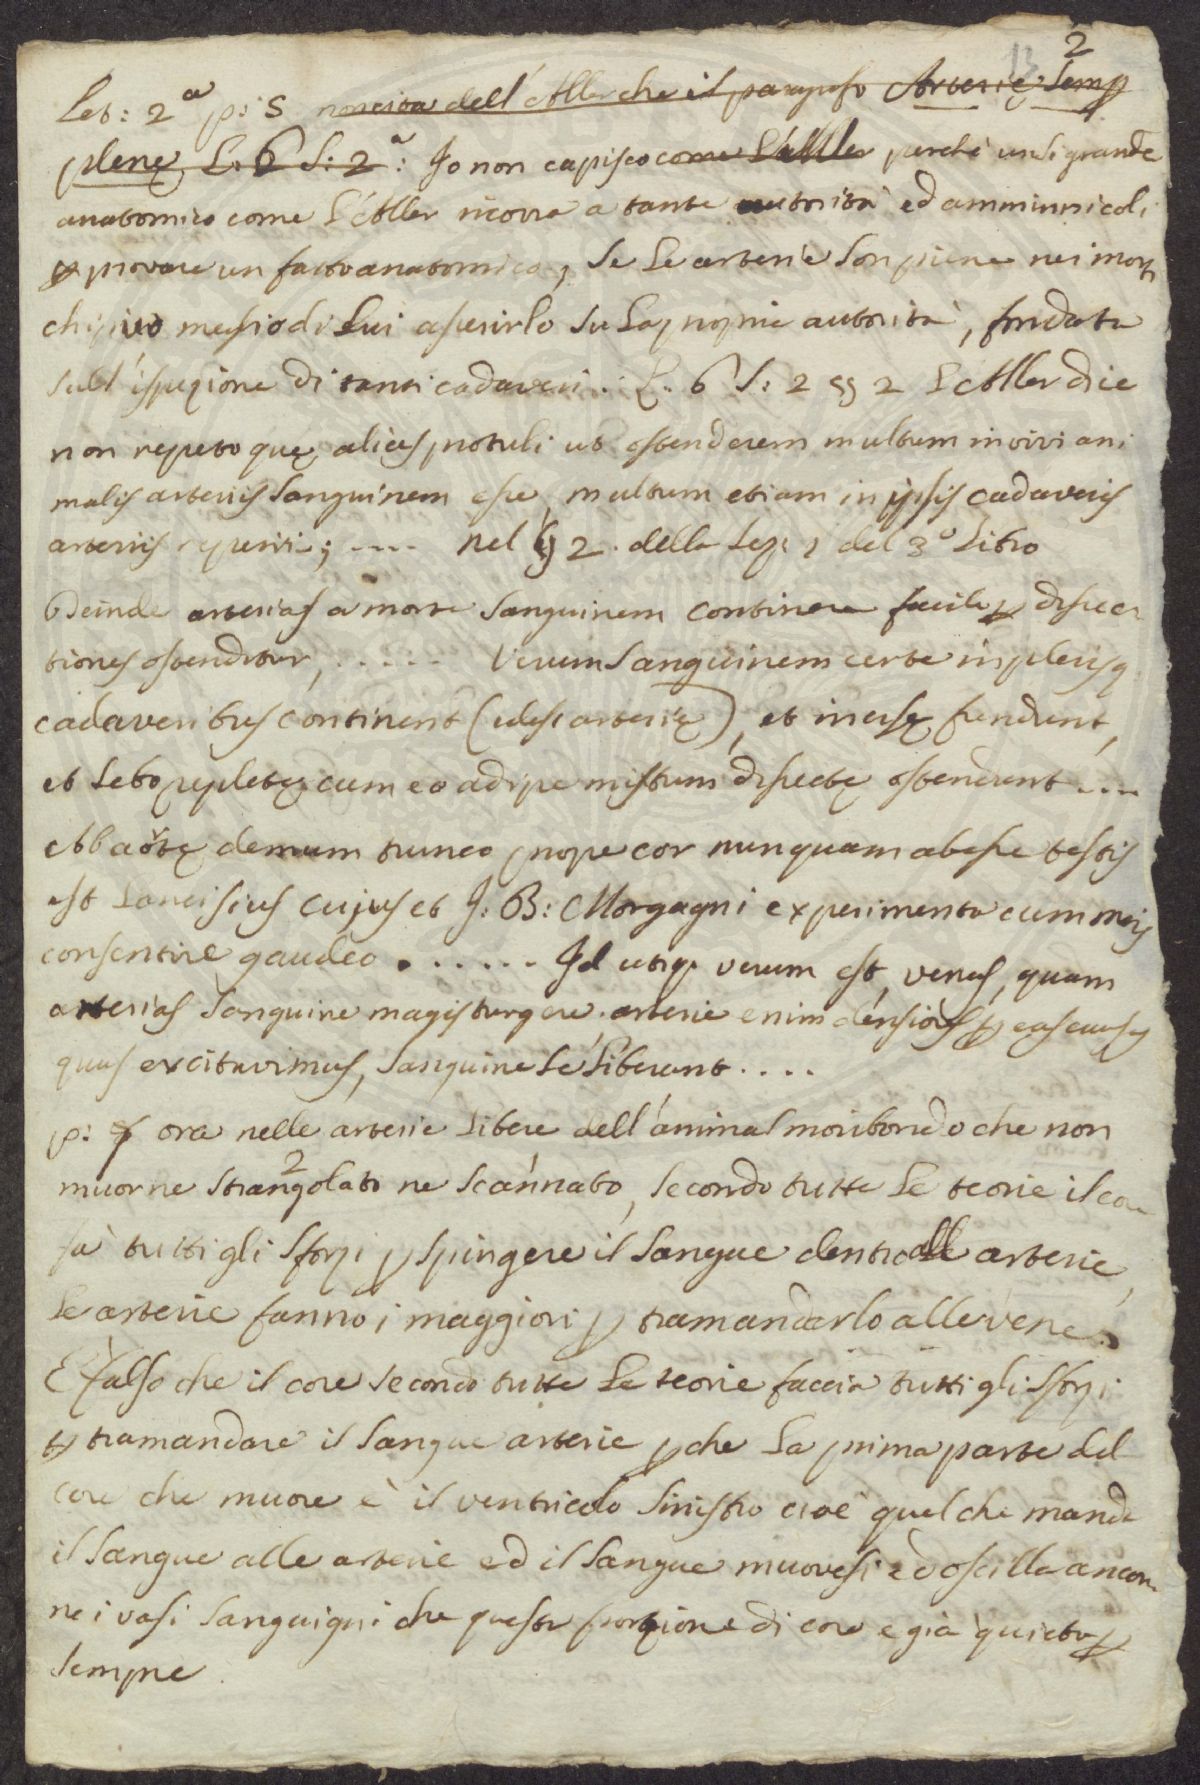 2
Let: 2.a p: 5 notisi dell'Aller che il paragrafo Arterię semp
plenę L: 6 S: 2.a: Io non capisco come l'Aller perchè un sì grande
anatomico come l'Aller ricorra a tante autorità ed amminnicoli
ꝑ provare un fatto anatomico, se le arterie son piene nei morti
chi più messio di lui asserirlo su la propria autorità, fondata
sull'ispezione di tanti cadaveri. L. 6 S: 2 §§ 2 l'Aller dice
non repeto quę alias protuli ut ostenderem multum in vivi ani
malis arteriis sanguinem esse, multum etiam in ipsis cadaveris
arteriis reperiri; .... nel § 2. della sez: 1 del 3.o Libro
Deinde arterias a morte sanguinem continere facile ꝑ dissec
tiones ostenditur, ..... Verum sanguinem certe in plerisq
cadaveribus continent (idest arterię), et incisę fundunt,
et sebo repletę cum eo adipe mistum dissectę ostendunt ....
Ab aortę demum trunco prope cor nunquam abesse testis
est Lancisius cujus et J: B: Morgagni experimenta cum meis
consentire gaudeo . . . . . . Id utiq. verum est, venas, quam
arterias sanguine magis turgere. arterie enim densiores ꝑ eas causas
quas excitavimus, sanguine se liberant ....
p: 7 ora nelle arterie libere dell'animal moribondo che non
2
muor ne strangolato ne scannato, secondo tutte le teorie il cor
fa tutti gli sforzi ꝑ spingere il sangue dentro alle arterie,
le arterie fanno i maggiori ꝑ tramandarlo alle vene.
È falso che il core secondo tutte le teorie faccia tutti gli sforzi
ꝑ tramandare il sangue arterie ꝑche la prima parte del
core che muore è il ventricolo sinistro cioè quel che manda
il sangue alle arterie ed il sangue muovesi ed oscilla ancor
ne i vasi sanguigni che questa porzione di core e già quieta ꝑ
sempre.